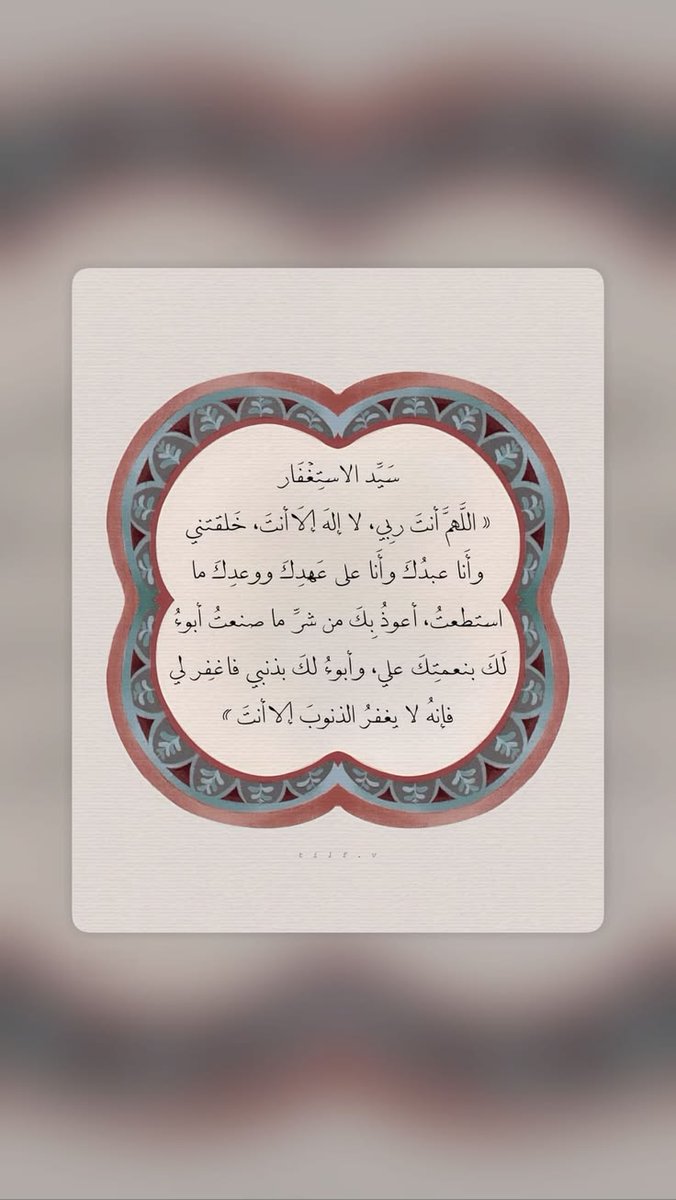 سَيِّد الاستِغْفَار
« اللَّهمَّ أنتَ ربِي، لا إلهَ إلا أنتَ، خَلقتني
وأَنا عبدُكَ وأَنا على عَهدِكَ ووعدِكَ ما
استطعتُ، أعوذُ بِكَ من شرِّ ما صنعتُ أبوءُ
لَكَ بنعمتِكَ علي، وأبوءُ لكَ بذنبي فاغفِر لي
فإنهُ لا يغفرُ الذنوبَ إلا أنتَ »
t i l f . v